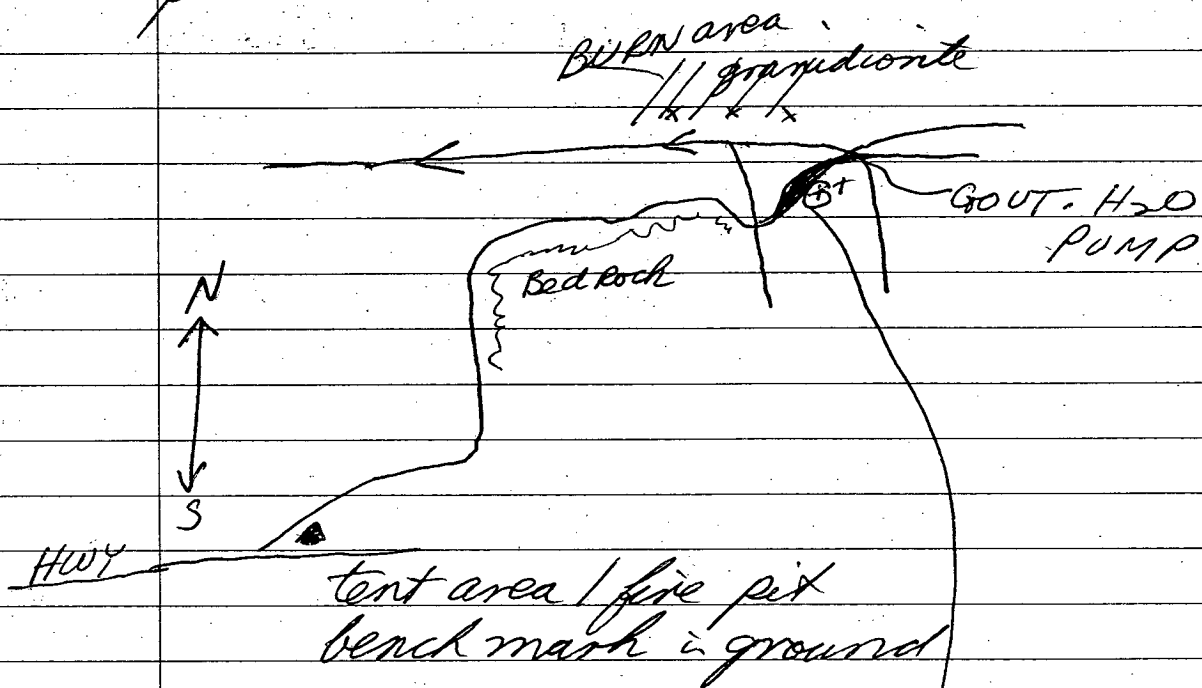 BURN area
granidionite
GOVT. H2O
PUMP
Bed Rock
N
S
HWY
tent area / fire pit
bench mark in ground